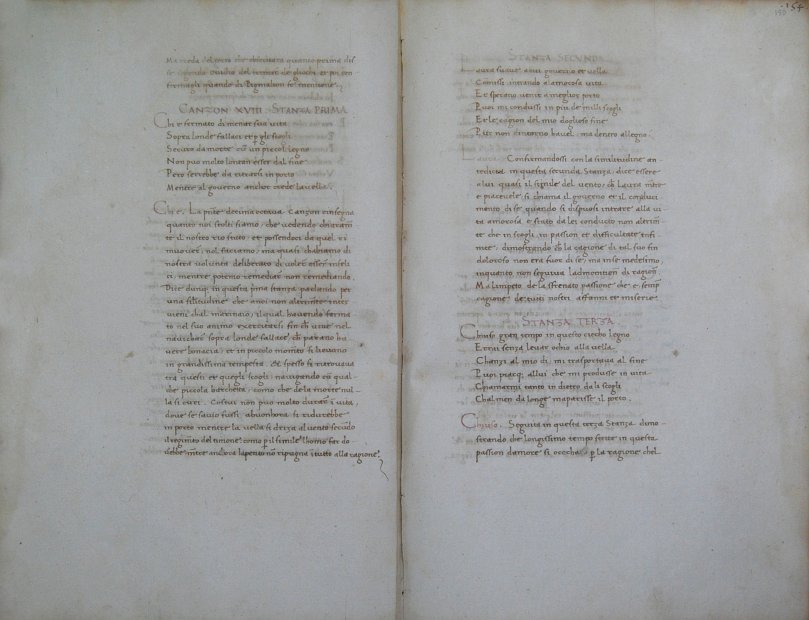 Ma creda del certo che obscurara quanto prima dis
se
quando di Pigmalion fe mentione
CANZON XVIII STANZA PRIMA
Chi e fermato di menar sua vita
Sopra londe fallaci et p gli scogli
Securo da morte cū un piccol legno
Non puo molto lontan esser dal fine
Pero serrebbe da ritrarsi in porto
Mentre al governo anchor crede la vella.
Chi e. La pñte decima octava Canzon rinsegna
quanto noi stolti siamo, che vedendo chiaram̄
te il nostro rio stato, et possendoci da quel ri
muover nol facciamo, ma quasi habbiamo di
nostra volunta deliberato di voler esser infeli
ci, mentre potemo remediar non remediando.
Dice dunq in questa pma stanza parlando per
una similitudine che a noi non altrimte inter
vieni chal marinaio, il qual havendo ferma
to nel suo animo exercitarsi
navichar sopra londe fallace, che parano ha
vere bonacia, et in piccolo momto si lievano
in grandissima tempesta. Et spesso si ritrovava
tra questi et quegli scogli, navigando cū qual
che piccola barchetta, como che de la morte nul
la si curi. Costui non puo molto durare ī vita,
dove se savio fussi, abuonhora si ridurebbe
in porto mentre la vella si drizza al vento secūdo
il regimto del timone, como p il simile lhomo far do
rebbe mētre anchora lapetito nō ripugna ī tutto alla ragione.
154
STANZA SECUNDA
Laura suave a cui governo et vella
Comisi intrando alamorosa vita
Et sperando venire a meglior porto
Puoi mi condusse in piu de milli scogli
Et le cagion del mio doglioso fine
Pur non dintorno havea, ma dentro allegno
Laura. Confirmandossi con la similitudine an
tedicta in questa secunda Stanza, dice essere
a lui quasi il simile del vento, ch Laura
e piacevole si chiama il governo et il conduci
mento di se, quando si dispuosi intrare alla vi
ta amorosa, e stato da lei conducto non altrim̄
te che in scogli, in passion et difficultate infi
nite, dimostrando ch la cagione di tal suo fin
doloroso non era fuor di se, ma in se medesimo,
inquanto non seguiva ladmonition di ragiōn
Ma limpeto de la sfrenata passione che e semp
cagione de tutti nostri affanni et miserie
STANZA TERZA
Chiuso gran tempo in questo ciecho legno
Errai senza levar ochio alla vella
Chanzi al mio di mi trasportava al fine
Puoi piacq allui che mi produsse in vita
Chiamarmi tanto in dietro da li scogli
Chalmen da longe maparisse il porto.
Chiuso. Seguita in questa terza Stanza, dimo
strando che longissimo tempo stette in questa
passion damore si ciecha, p la ragione chel